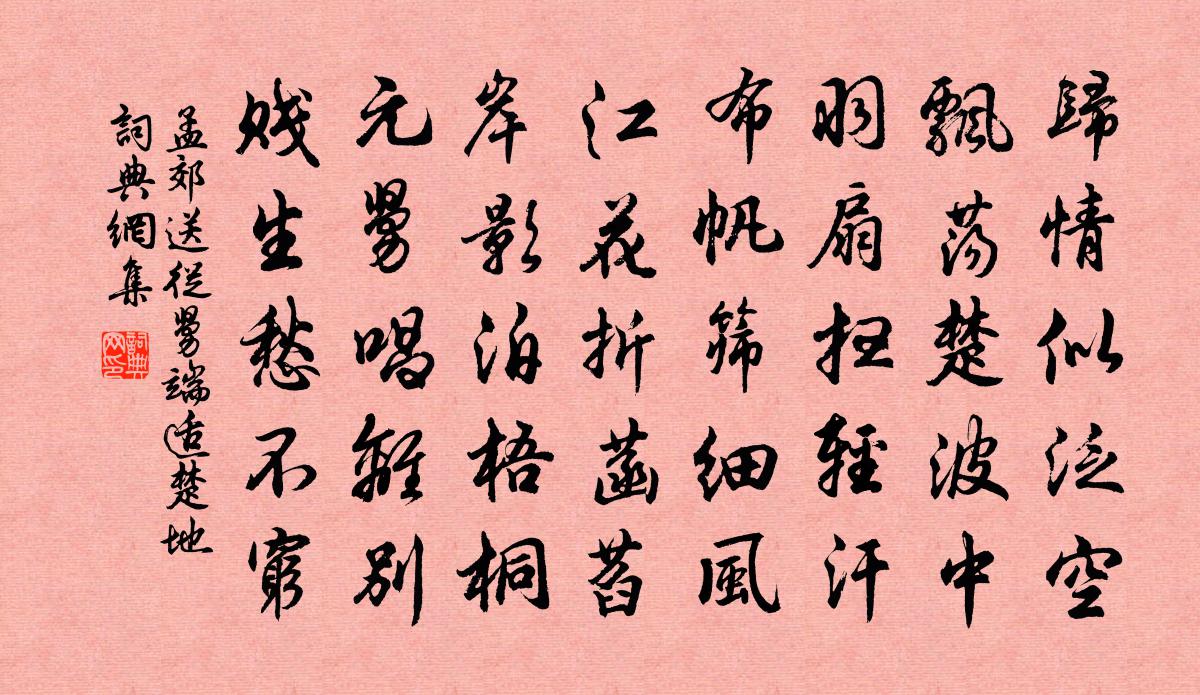 歸情似泛空
飄蕩楚波中
羽扇扫輕汗
布帆篩細風
江花折菡萏
岸影泊梧桐
元舅唱離別
賤生愁不窮
孟郊送從舅端适楚地
詞典網集
詞典網印